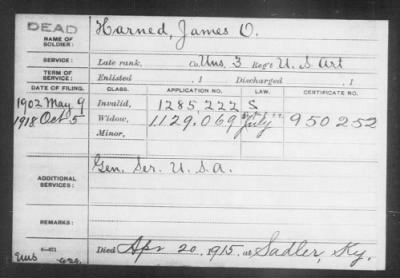 DEAD
NAME OF SOLDIER: Harned, James O.
SERVICE: Late rank, Co. Uns. 3 Reg't U. S. Art
TERM OF SERVICE: Enlisted , 1 Discharged , 1
DATE OF FILING. CLASS. APPLICATION NO. LAW. CERTIFICATE NO.
1902 May 9 Invalid, 1285,222 S
1918 Oct 5 Widow, 1129.069 July 950252
Minor,
ADDITIONAL SERVICES: Gen. Ser. U.S.A.
REMARKS:
Died Apr 20, 1915, at Sadler, Ky.